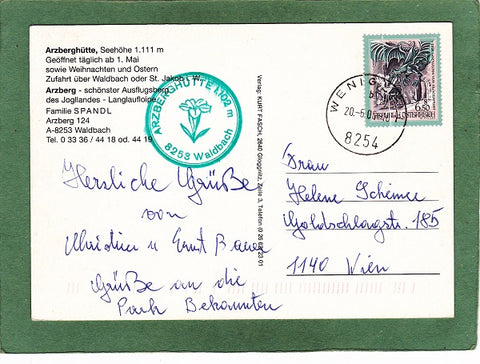 Arzberghütte, Seehöhe 1.111 m
Geöffnet täglich ab 1. Mai
sowie Weihnachten und Ostern
Zufahrt über Waldbach oder St. Jakob i. W.
Arzberg - schönster Ausflugsberg
des Jogllandes - Langlaufloipe
Familie SPANDL
Arzberg 124
A-8253 Waldbach
Tel. 0 33 36 / 44 18 od. 44 19
ARZBERGHÜTTE 1.102 m
8253 Waldbach
Herzliche Grüße
von
Christina u Ernst Bauer
Grüße an die
Park Bekannten
Verlag: KURT FASCH, 2640 Gloggnitz, Zeile 3, Telefon (0 26 62)
WENIG
20.-6.05
8254
6.50
Frau
Helene
Goldschlagstr. 185
1140 Wien